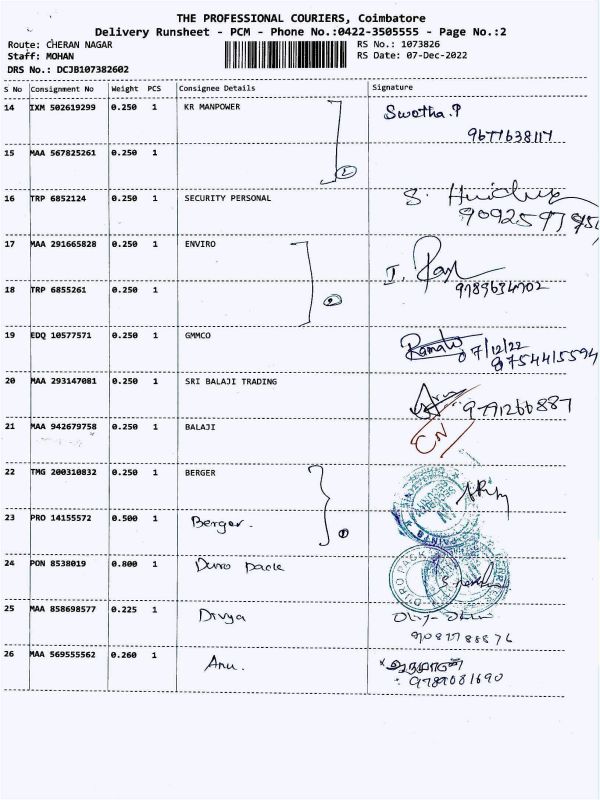 THE PROFESSIONAL COURIERS, Coimbatore
Delivery Runsheet - PCM - Phone No.:0422-3505555 - Page No.:2
Route: CHERAN NAGAR RS No.: 1073826
Staff: MOHAN RS Date: 07-Dec-2022
DRS No.: DCJB107382602
S No Consignment No Weight PCS Consignee Details Signature
14 IXM 502619299 0.250 1 KR MANPOWER Swetha.P
9677638117
15 MAA 567825261 0.250 1
16 TRP 6852124 0.250 1 SECURITY PERSONAL S.
17 MAA 291665828 0.250 1 ENVIRO I.
9789634702
18 TRP 6855261 0.250 1
19 EDQ 10577571 0.250 1 GMMCO 07/12/22
9754415594
20 MAA 293147081 0.250 1 SRI BALAJI TRADING
21 MAA 942679758 0.250 1 BALAJI CN
22 TMG 200310832 0.250 1 BERGER
23 PRO 14155572 0.500 1 Berger.
24 PON 8538019 0.800 1 Duro pack
25 MAA 858698577 0.225 1 Divya
26 MAA 569555562 0.260 1 Anu.
9789081690